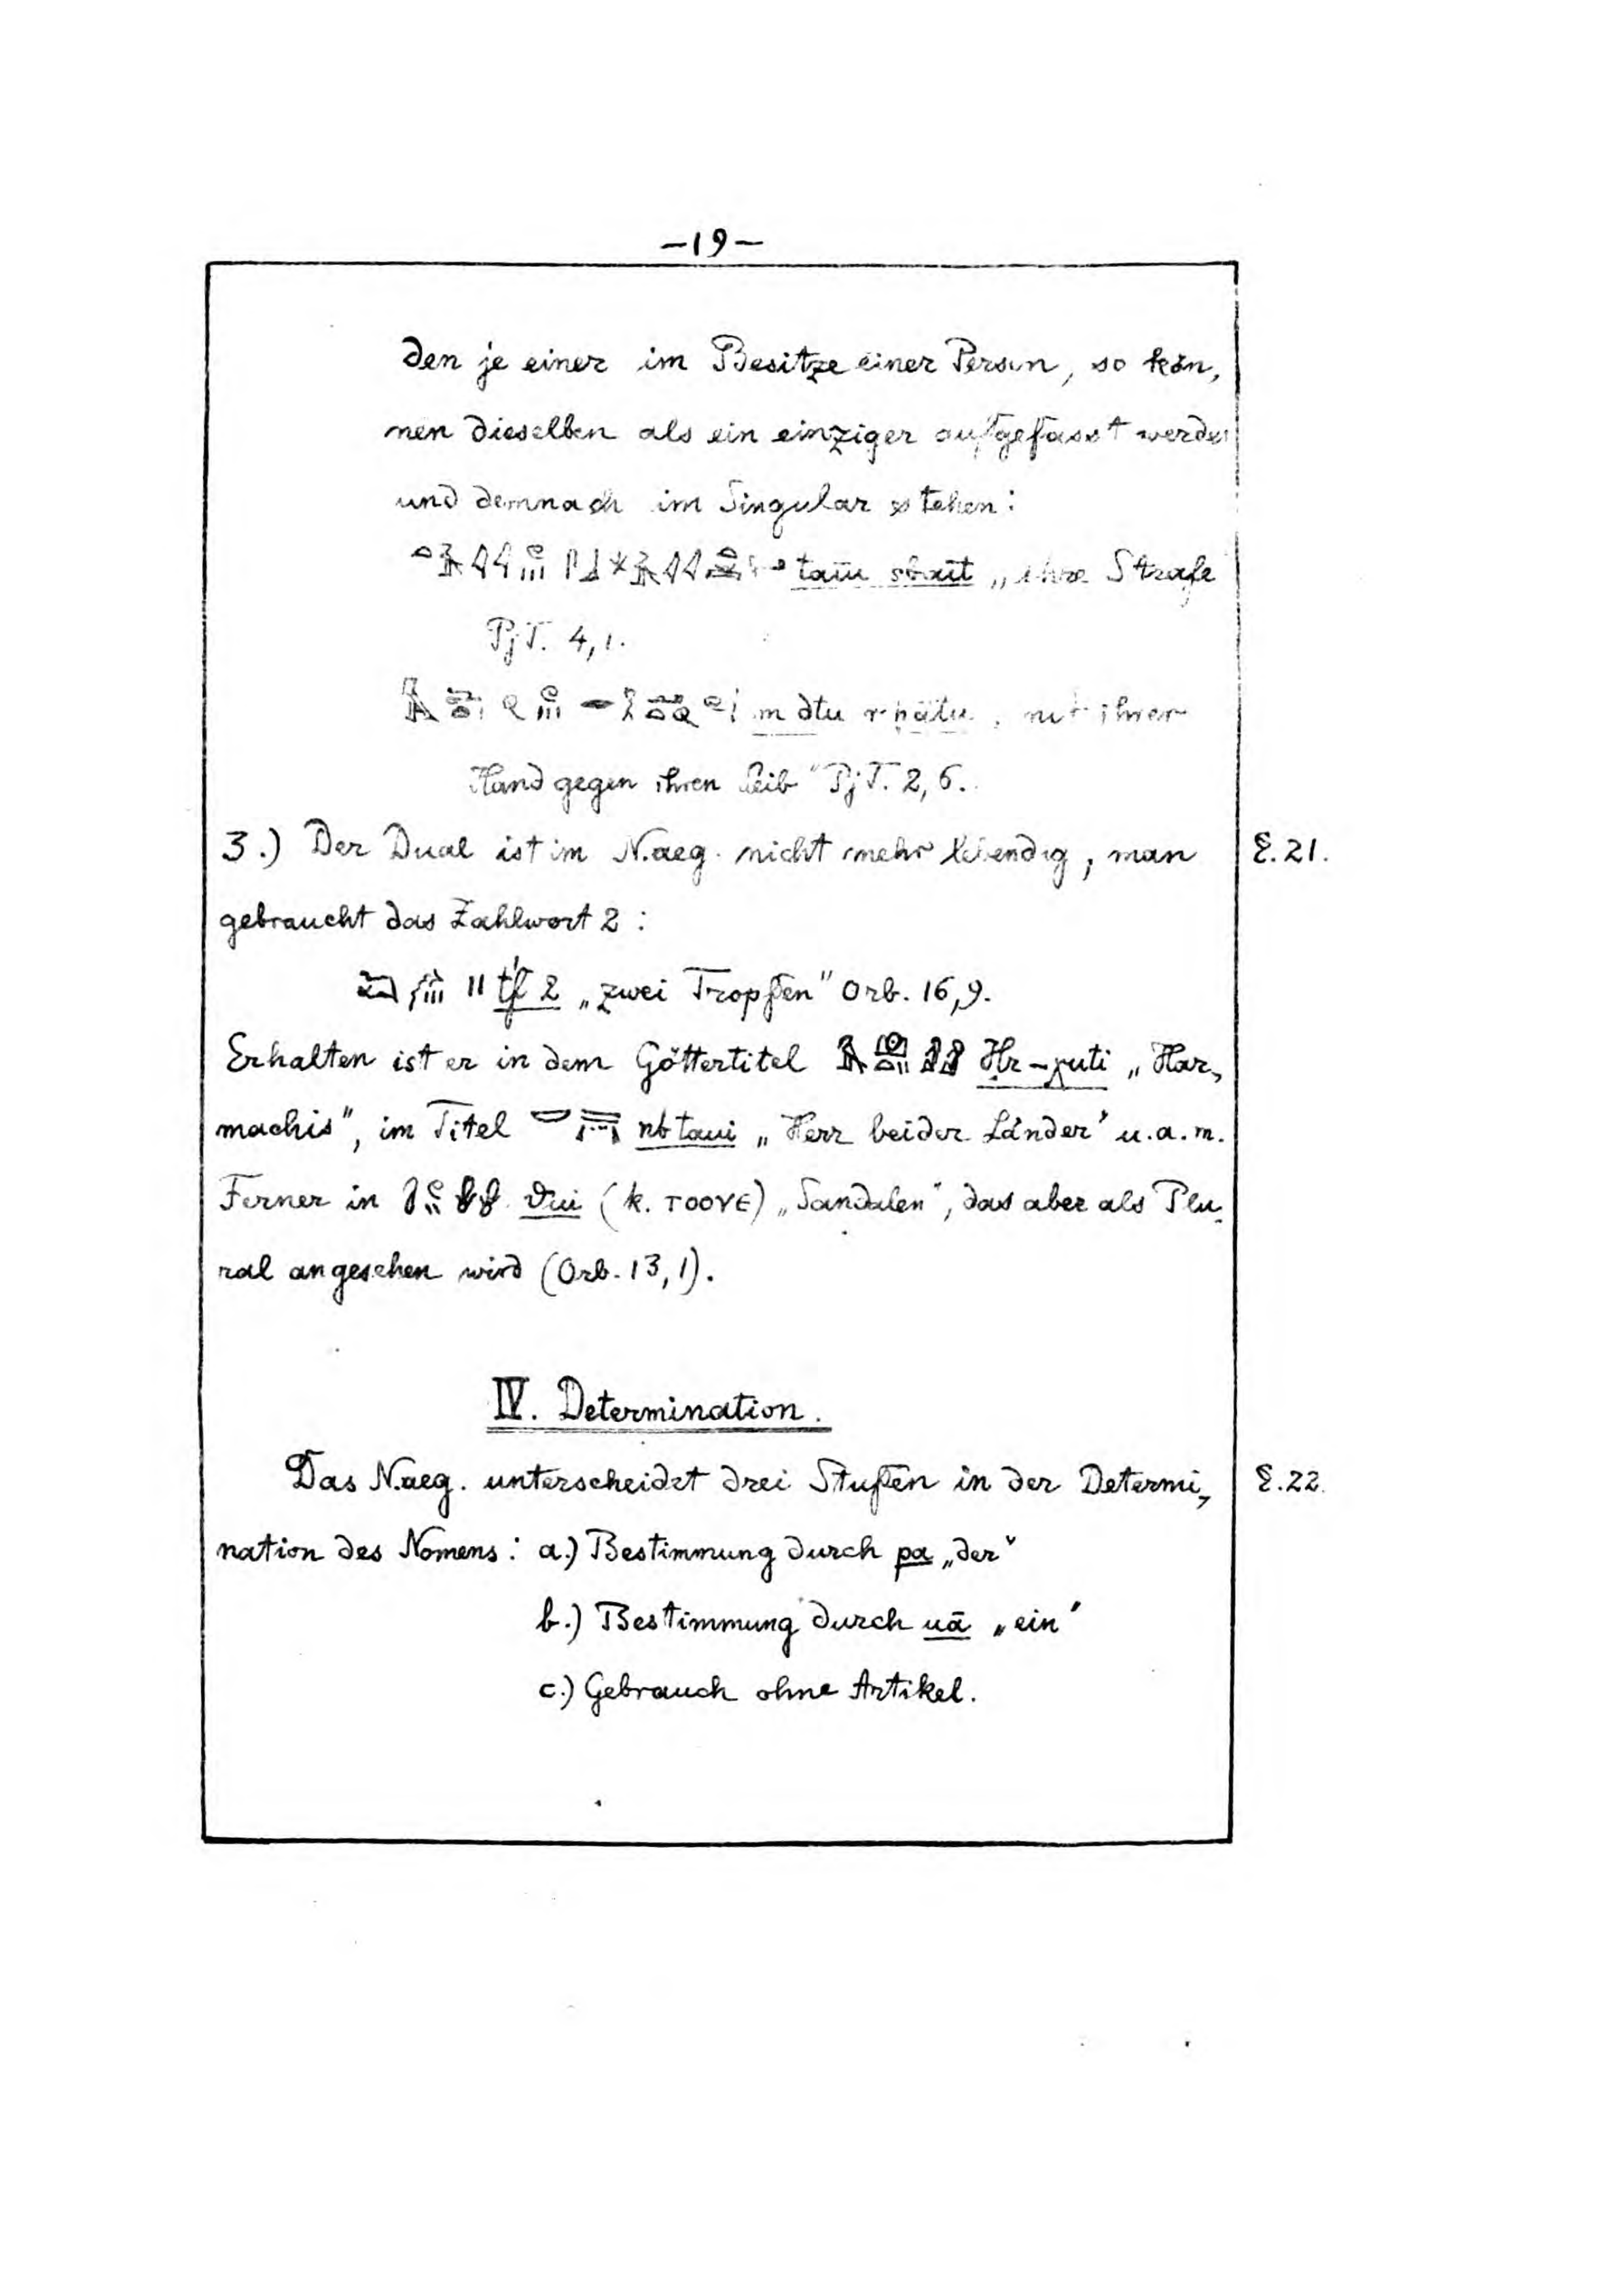 –19–
den je einer im Besitze einer Person, so kön,
nen dieselben als ein einziger aufgefasst werde
und demnach im Singular stehen:
„ihre Strafe
PjT. 4,1.
m dtu r ḥātu „mit ihrer
Hand gegen ihren Leib" PjT. 2,6.
3.) Der Dual ist im N.aeg. nicht mehr lebendig, man §.21.
gebraucht das Zahlwort 2:
2 „zwei Tropfen" Orb. 16,9.
Erhalten ist er in dem Göttertitel Ḥr-χuti „Har,
machis", im Titel nb taui „Herr beider Länder" u.a.m.
Ferner in (k. ⲧⲟⲟⲩⲉ) „Sandalen", das aber als Plu,
ral angesehen wird (Orb. 13,1).
IV. Determination.
Das N.aeg. unterscheidet drei Stufen in der Determi, §.22.
nation des Nomens: a.) Bestimmung durch pa „der"
b.) Bestimmung durch uā „ein"
c.) Gebrauch ohne Artikel.